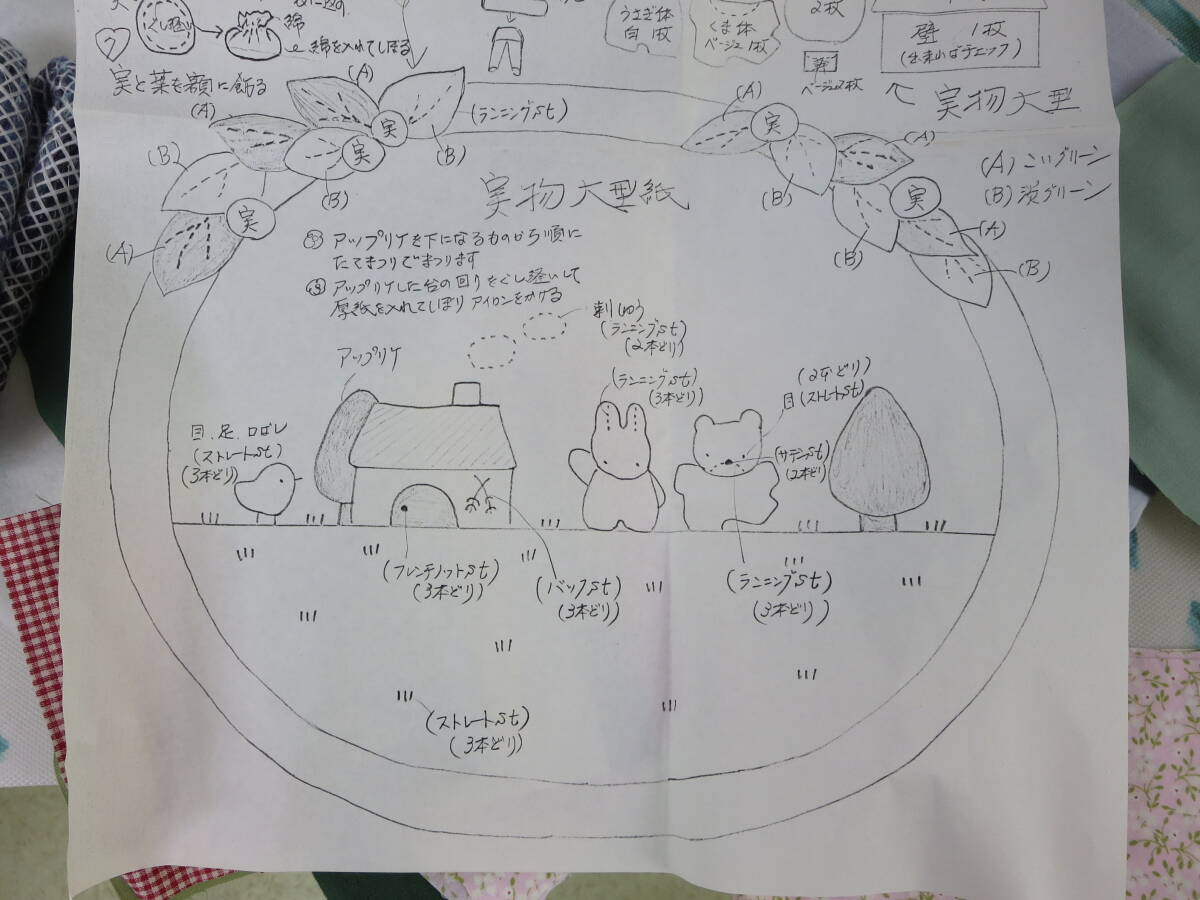 ぐし縫い
綿
綿を入れてしぼる
⑦
実と葉を額に飾る
うさぎ体
白 1枚
くま体
ベージュ 1枚
2枚
ベージュ2枚
壁 1枚
実物大型
(A)
(A)
(B)
(A)
(B)
(B)
実
実
実
(ランニングst)
(A)
実
(B)
(A)
(B)
実
(A)
(B)
(A) こいグリーン
(B) 淡グリーン
実物大型紙
アップリケを下になるものから順に
たてまつりでまつります
アップリケした台の回りをぐし縫いして
厚紙を入れてしぼりアイロンをかける
刺しゅう
(ランニングst)
(2本どり)
アップリケ
(ランニングst)
(3本どり)
(2本どり)
目(ストレートst)
目、足、口ばし
(ストレートst)
(3本どり)
(サテンst)
(2本どり)
(フレンチノットst)
(3本どり)
(バックst)
(3本どり)
(ランニングst)
(3本どり)
(ストレートst)
(3本どり)